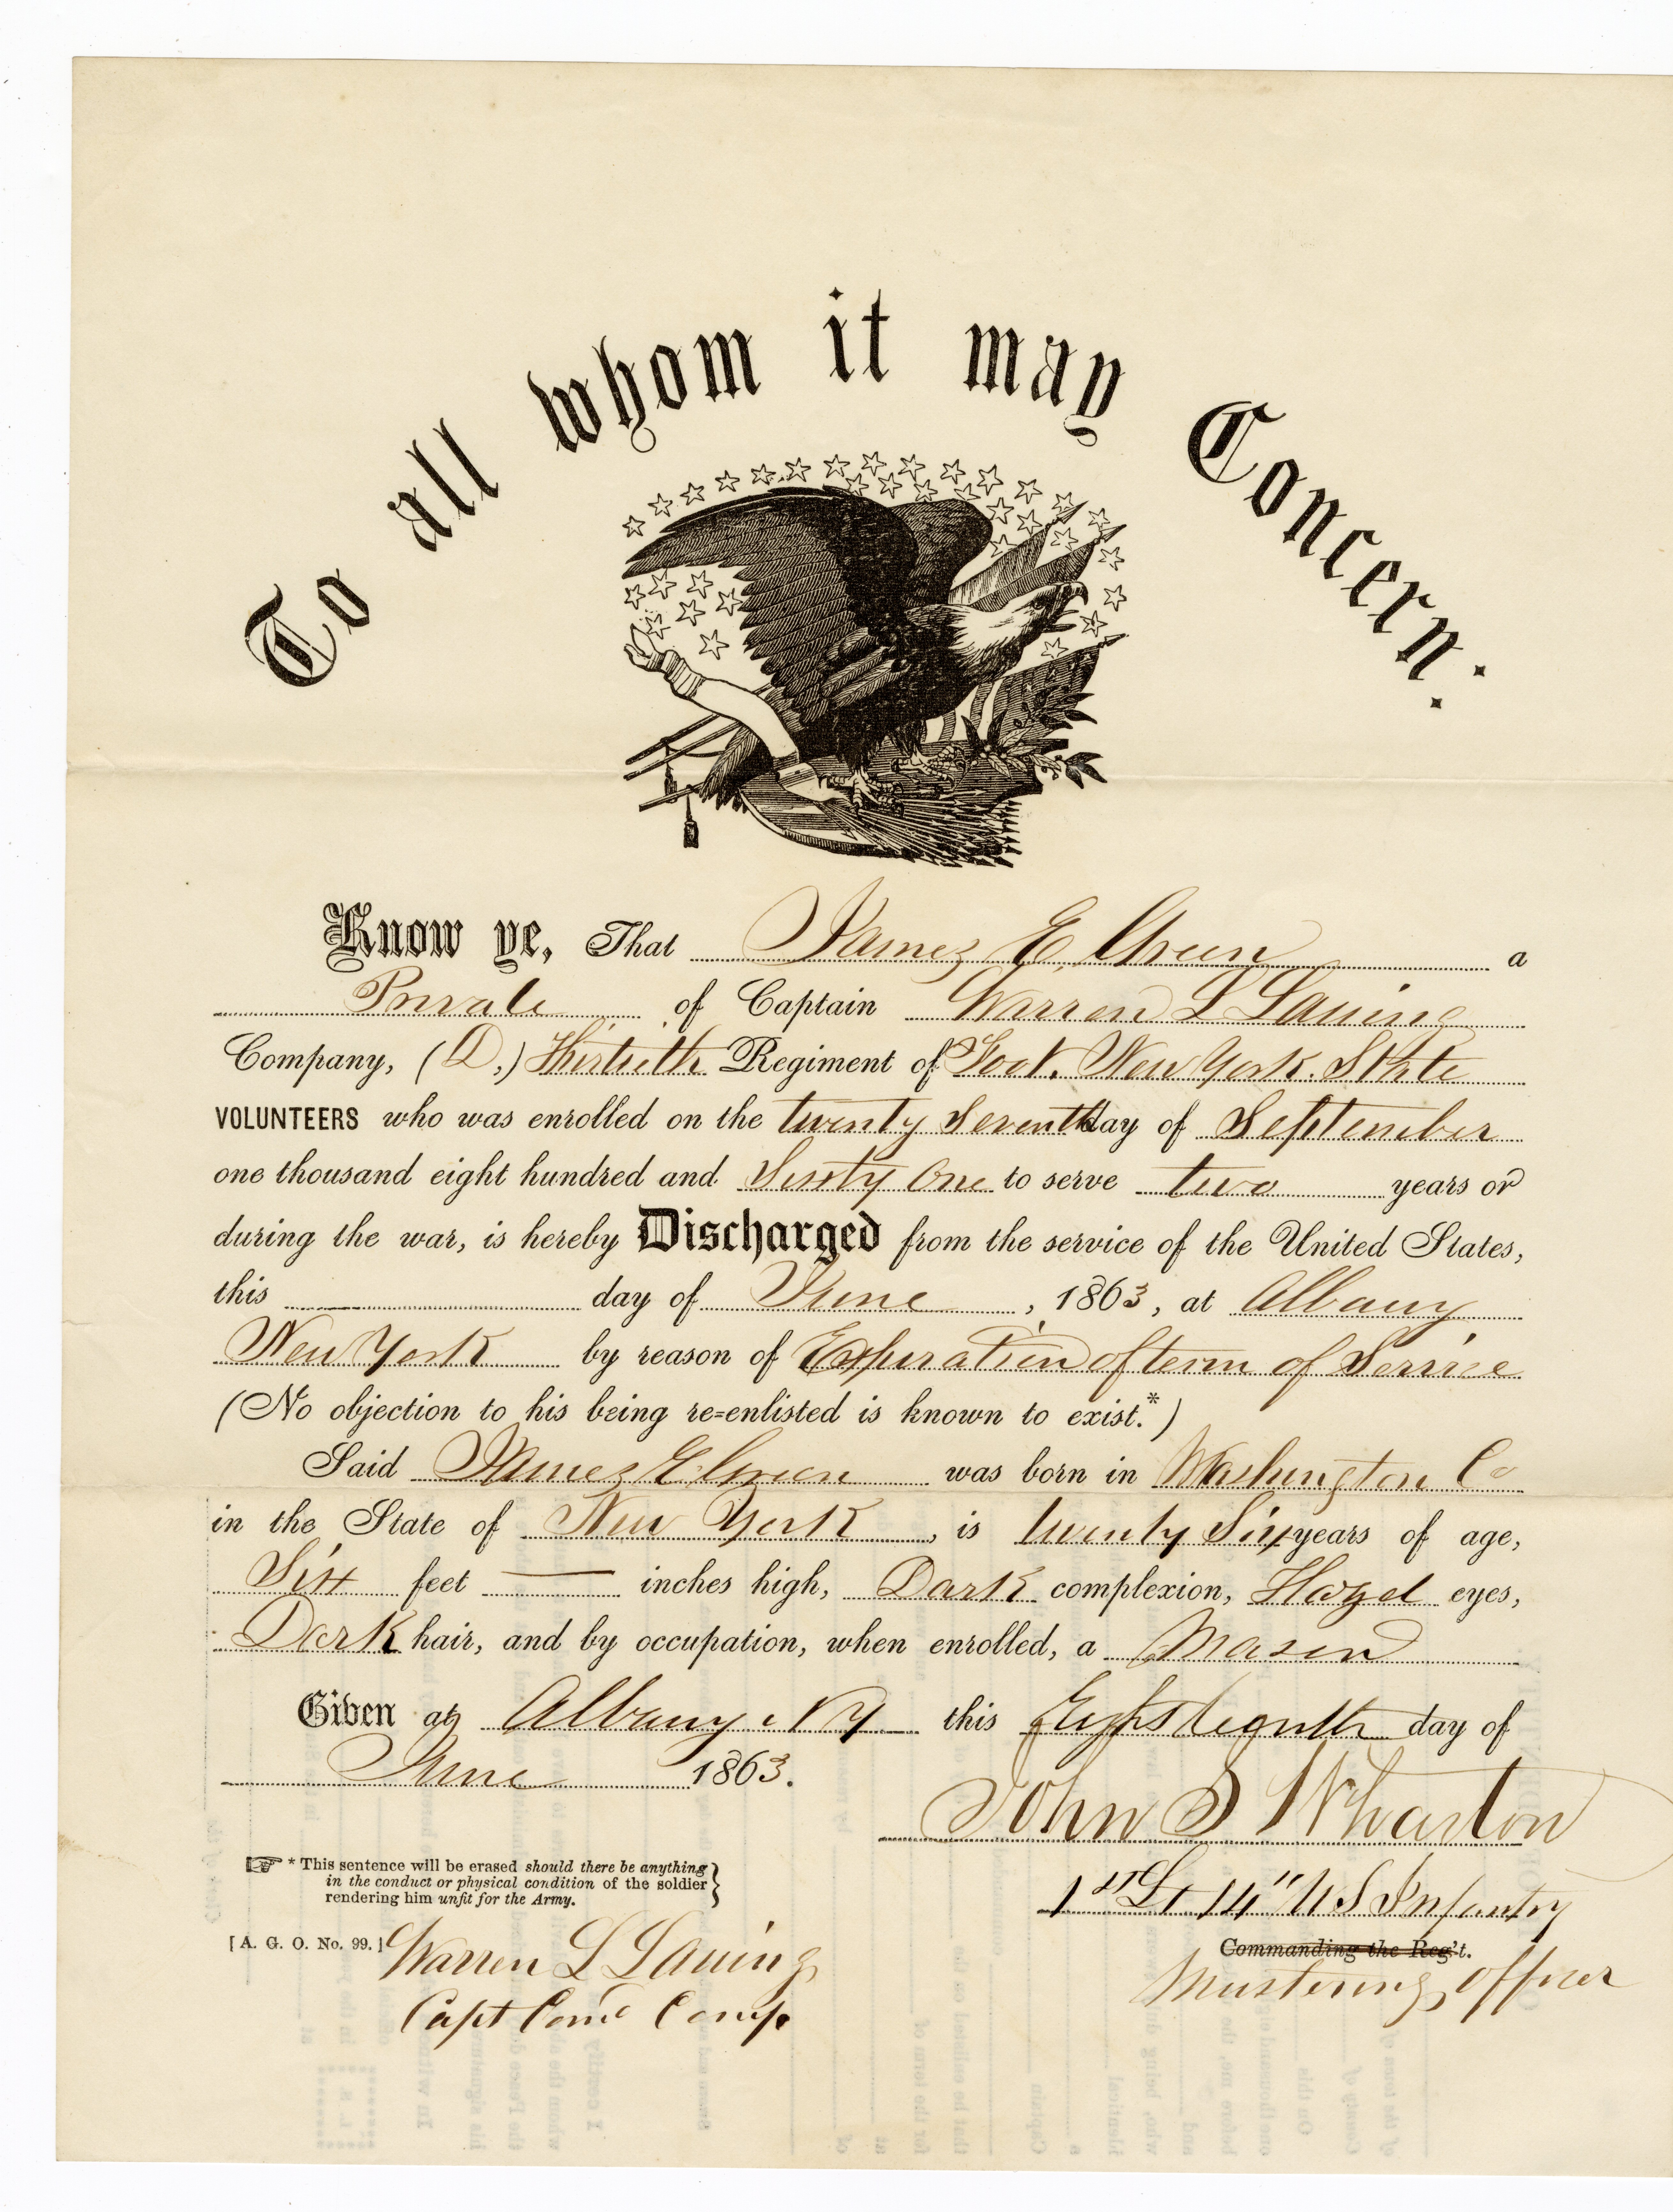 To all whom it may Concern:
Know ye, That James E. Green a
Private of Captain Warren L Laning
Company, (D,) Thirtieth Regiment of Foot. New York State
VOLUNTEERS who was enrolled on the twenty Seventh day of September
one thousand eight hundred and Sixty One to serve two years or
during the war, is hereby Discharged from the service of the United States,
this day of June, 1863, at Albany
New York by reason of Expiration of term of Service
(No objection to his being re=enlisted is known to exist.*)
Said James E Green was born in Washington Co
in the State of New York, is twenty Six years of age,
Six feet — inches high, Dark complexion, Hazel eyes,
Dark hair, and by occupation, when enrolled, a Mason
Given at Albany NY this day of
June 1863.
John S Wharton
1st Lt 14" U S Infantry
Commanding the Reg't.
Mustering Officer
* This sentence will be erased should there be anything
in the conduct or physical condition of the soldier
rendering him unfit for the Army.
[A. G. O. No. 99.]
Warren L Laning
Capt Comd Comp.